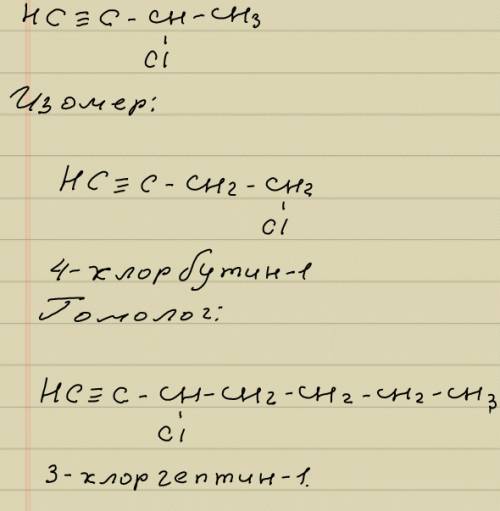 HC≡C-CH-CH3
Cl
Изомер:
HC≡C-CH2-CH2
Cl
4-хлорбутин-1
Гомолог:
HC≡C-CH-CH2-CH2-CH2-CH3
Cl
3-хлоргептин-1.